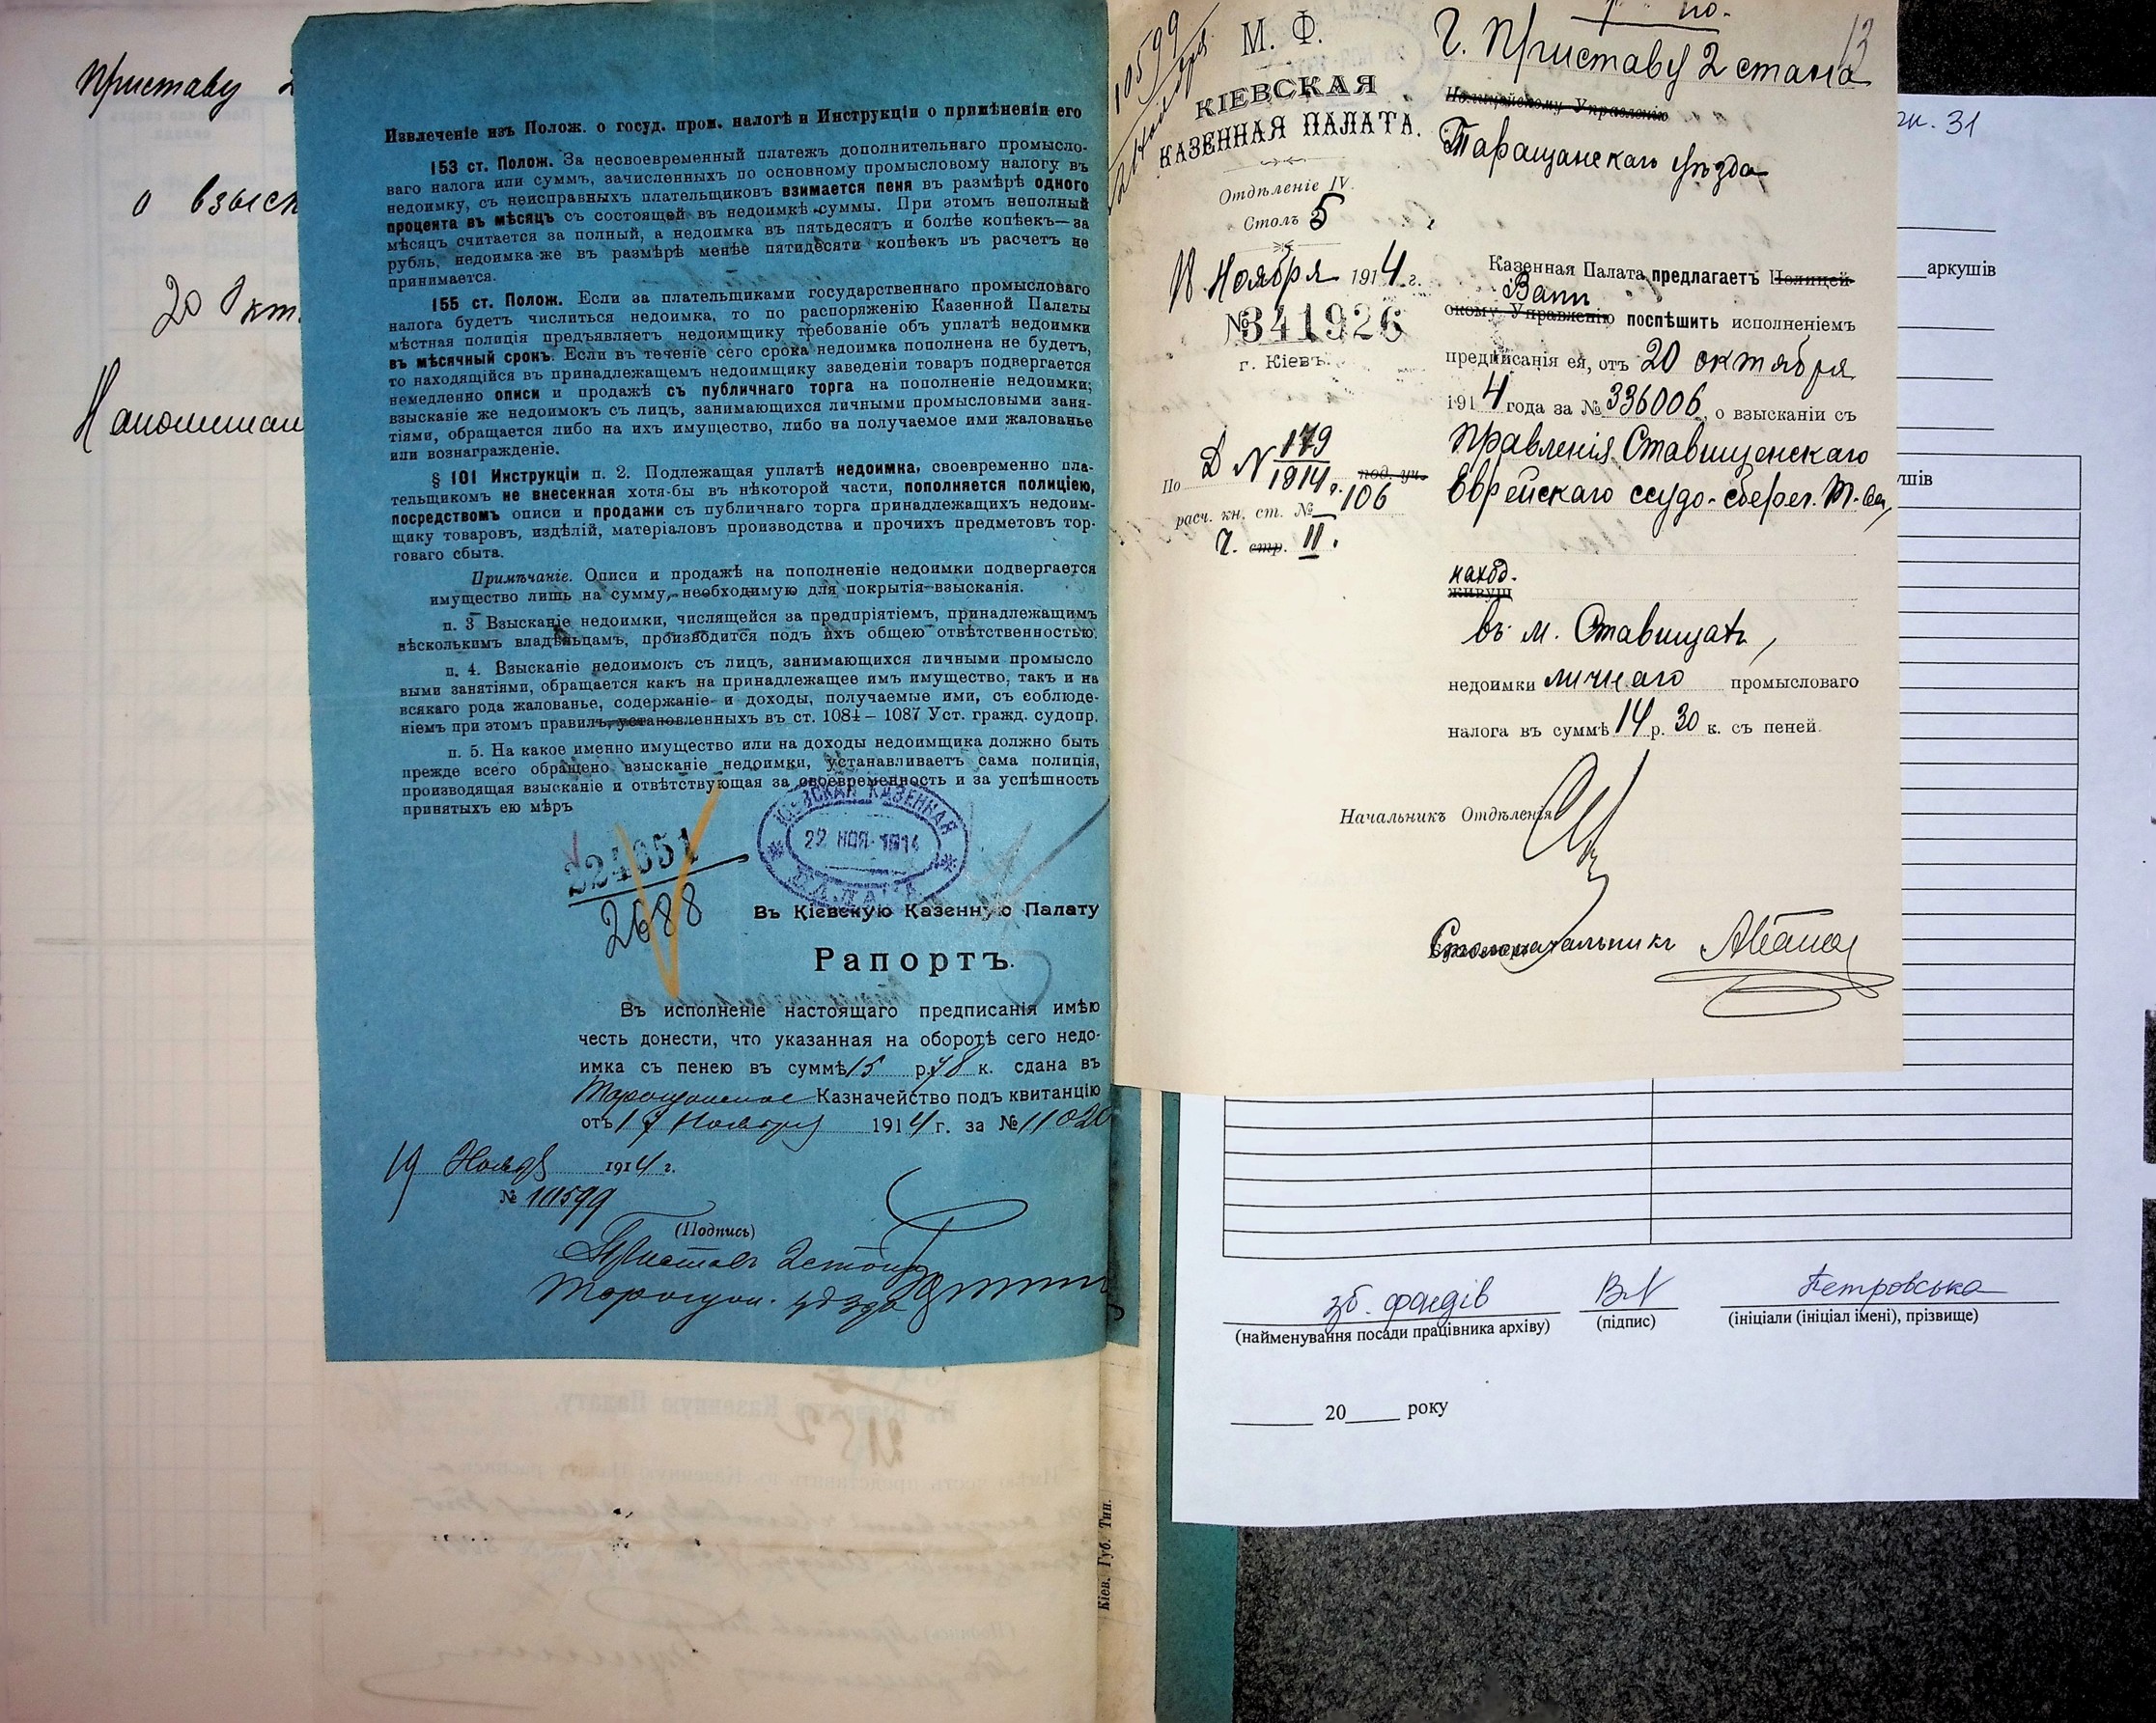 Приставу 2
о взыск
20 Окт.
Напоминан
Извлеченіе изъ Полож. о госуд. пром. налогѣ и Инструкціи о примѣненіи его
153 ст. Полож. За несвоевременный платежъ дополнительнаго промысло-
ваго налога или суммъ, зачисленныхъ по основному промысловому налогу въ
недоимку, съ неисправныхъ плательщиковъ взимается пеня въ размѣрѣ одного
процента въ мѣсяцъ съ состоящей въ недоимкѣ суммы. При этомъ неполный
мѣсяцъ считается за полный, а недоимка въ пятьдесятъ и болѣе копѣекъ—за
рубль, недоимка-же въ размѣрѣ менѣе пятидесяти копѣекъ въ расчетъ не
принимается.
155 ст. Полож. Если за плательщиками государственнаго промысловаго
налога будетъ числиться недоимка, то по распоряженію Казенной Палаты
мѣстная полиція предъявляетъ недоимщику требованіе объ уплатѣ недоимки
въ мѣсячный срокъ. Если въ теченіе сего срока недоимка пополнена не будетъ,
то находящійся въ принадлежащемъ недоимщику заведеніи товаръ подвергается
немедленно описи и продажѣ съ публичнаго торга на пополненіе недоимки;
взысканіе же недоимокъ съ лицъ, занимающихся личными промысловыми заня-
тіями, обращается либо на ихъ имущество, либо на получаемое ими жалованье
или вознагражденіе.
§ 101 Инструкціи п. 2. Подлежащая уплатѣ недоимка, своевременно пла-
тельщикомъ не внесенная хотя-бы въ нѣкоторой части, пополняется полиціею,
посредствомъ описи и продажи съ публичнаго торга принадлежащихъ недоим-
щику товаровъ, издѣлій, матеріаловъ производства и прочихъ предметовъ тор-
говаго сбыта.
Примѣчаніе. Описи и продажѣ на пополненіе недоимки подвергается
имущество лишь на сумму, необходимую для покрытія взысканія.
п. 3 Взысканіе недоимки, числящейся за предпріятіемъ, принадлежащимъ
нѣсколькимъ владѣльцамъ, производится подъ ихъ общею отвѣтственностью.
п. 4. Взысканіе недоимокъ съ лицъ, занимающихся личными промысло
выми занятіями, обращается какъ на принадлежащее имъ имущество, такъ и на
всякаго рода жалованье, содержаніе и доходы, получаемые ими, съ соблюде-
ніемъ при этомъ правилъ, установленныхъ въ ст. 1084 – 1087 Уст. гражд. судопр.
п. 5. На какое именно имущество или на доходы недоимщика должно быть
прежде всего обращено взысканіе недоимки, устанавливаетъ сама полиція,
производящая взысканіе и отвѣтствующая за своевременность и за успѣшность
принятыхъ ею мѣръ
224051
2688
КІЕВСКАЯ КАЗЕННАЯ
22 НОЯ. 1914
ПАЛАТА
Въ Кіевскую Казенную Палату
Рапортъ.
Въ исполненіе настоящаго предписанія имѣю
честь донести, что указанная на оборотѣ сего недо-
имка съ пенею въ суммѣ 15 р. 78 к. сдана въ
Таращанское Казначейство подъ квитанцію
отъ 17 Ноября 1914 г. за № 11020
19 Ноября 1914 г.
№ 10599
(Подпись)
Приставъ 2 стана
Таращан. уѣзда
Кіев. Губ. Тип.
10599
М. Ф.
КІЕВСКАЯ
КАЗЕННАЯ ПАЛАТА.
Отдѣленіе IV.
Столъ 5
18 Ноября 1914 г.
№ 341926
г. Кіевъ.
По Д N 179
1914 г. под. уч.
расч. кн. ст. № 106
Ч. стр. II.
13
Г. Приставу 2 стана
Полицейскому Управленію
Таращанскаго уѣзда
Казенная Палата предлагаетъ Полицей-
Вамъ
скому Управленію поспѣшить исполненіемъ
предписанія ея, отъ 20 октября
1914 года за № 336006, о взысканіи съ
Правленія Ставищенскаго
Еврейскаго ссудо-сберег. Т-ва,
наход.
живущ
въ м. Ставищахъ,
недоимки личнаго промысловаго
налога въ суммѣ 14 р. 30 к. съ пеней.
Начальникъ Отдѣленія
Столоначальникъ
31
аркушів
шів
зб. фондів
Петровська
(найменування посади працівника архіву)
(підпис)
(ініціали (ініціал імені), прізвище)
20 року